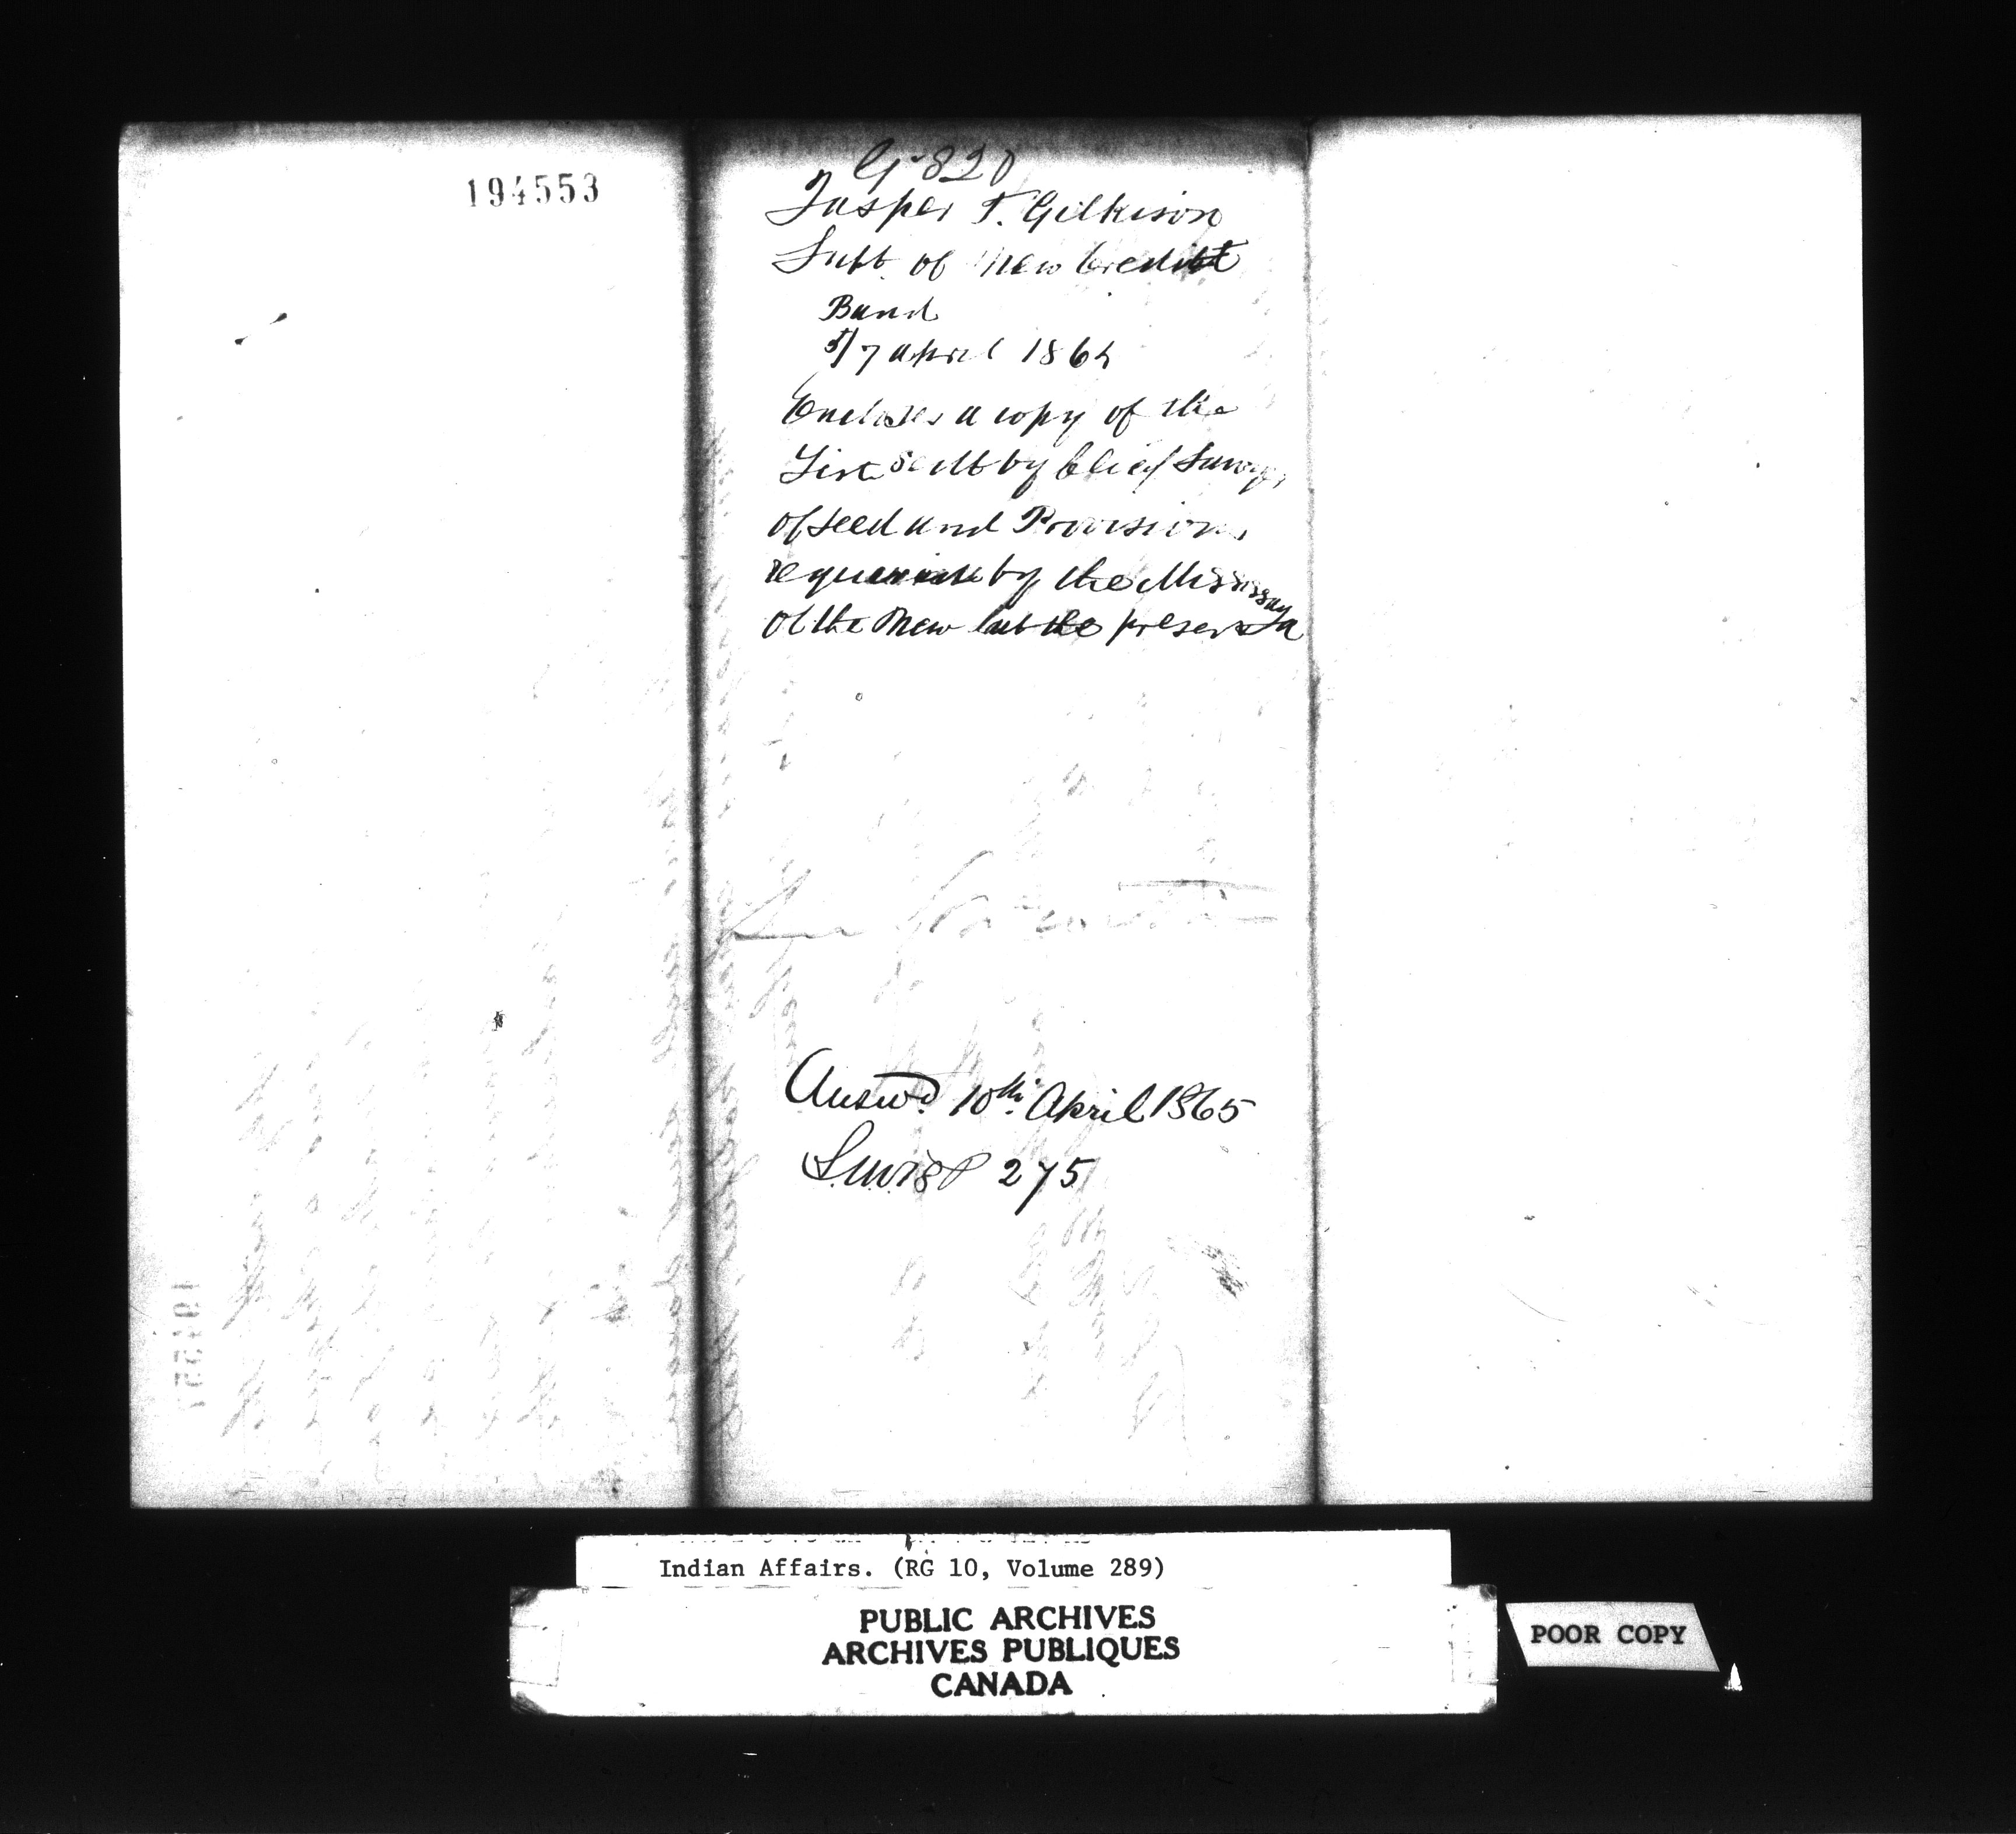 194553
G 820
Jasper T. Gilkison
Supt. of New Credit
Band
5/7 April 1865
Encloses a copy of the
List sent by Chief Sawyer
of seed and Provisions
by the Mississagua
of the New
Answd. 10th April 1865
275
Indian Affairs. (RG 10, Volume 289)
PUBLIC ARCHIVES
ARCHIVES PUBLIQUES
CANADA
POOR COPY